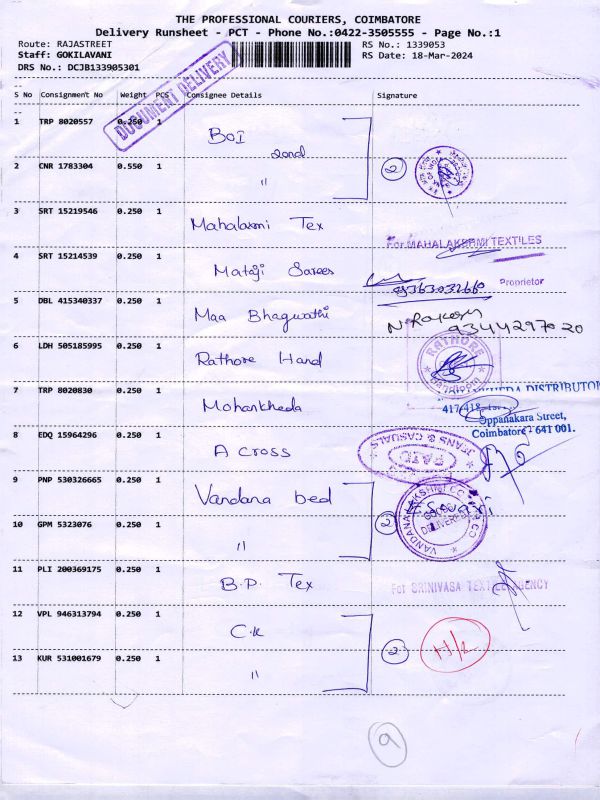 THE PROFESSIONAL COURIERS, COIMBATORE
Delivery Runsheet - PCT - Phone No.:0422-3505555 - Page No.:1
Route: RAJASTREET RS No.: 1339053
Staff: GOKILAVANI RS Date: 18-Mar-2024
DRS No.: DCJB133905301
DOCUMENT DELIVERY
S No Consignment No Weight PCS Consignee Details Signature
1 TRP 8020557 0.250 1 BOI
2nd
2 CNR 1783304 0.550 1 " 2
3 SRT 15219546 0.250 1 Mahalaxmi Tex
For MAHALAKSHMI TEXTILES
Proprietor
4 SRT 15214539 0.250 1 Mataji Sarees
5 DBL 415340337 0.250 1 Maa Bhagwathi N. Rakesh
9344297020
6 LDH 505185995 0.250 1 Rathore Hand RATHORE
7 TRP 8020830 0.250 1 Mohankheda DISTRIBUTOR
417/418
Oppanakara Street,
Coimbatore - 641 001.
8 EDQ 15964296 0.250 1 A cross PAID
JEANS & CASUALS
9 PNP 530326665 0.250 1 Vandana bed
10 GPM 5323076 0.250 1 " 2
11 PLI 200369175 0.250 1 B.P. Tex For SRINIVASA TEXTILE AGENCY
12 VPL 946313794 0.250 1 C.K
13 KUR 531001679 0.250 1 " 2 H/2
9